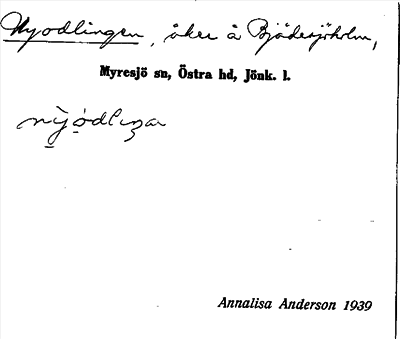 Nyodlingen, åker å Bjädesjöholm,
Myresjö sn, Östra hd, Jönk. l.
Annalisa Anderson 1939